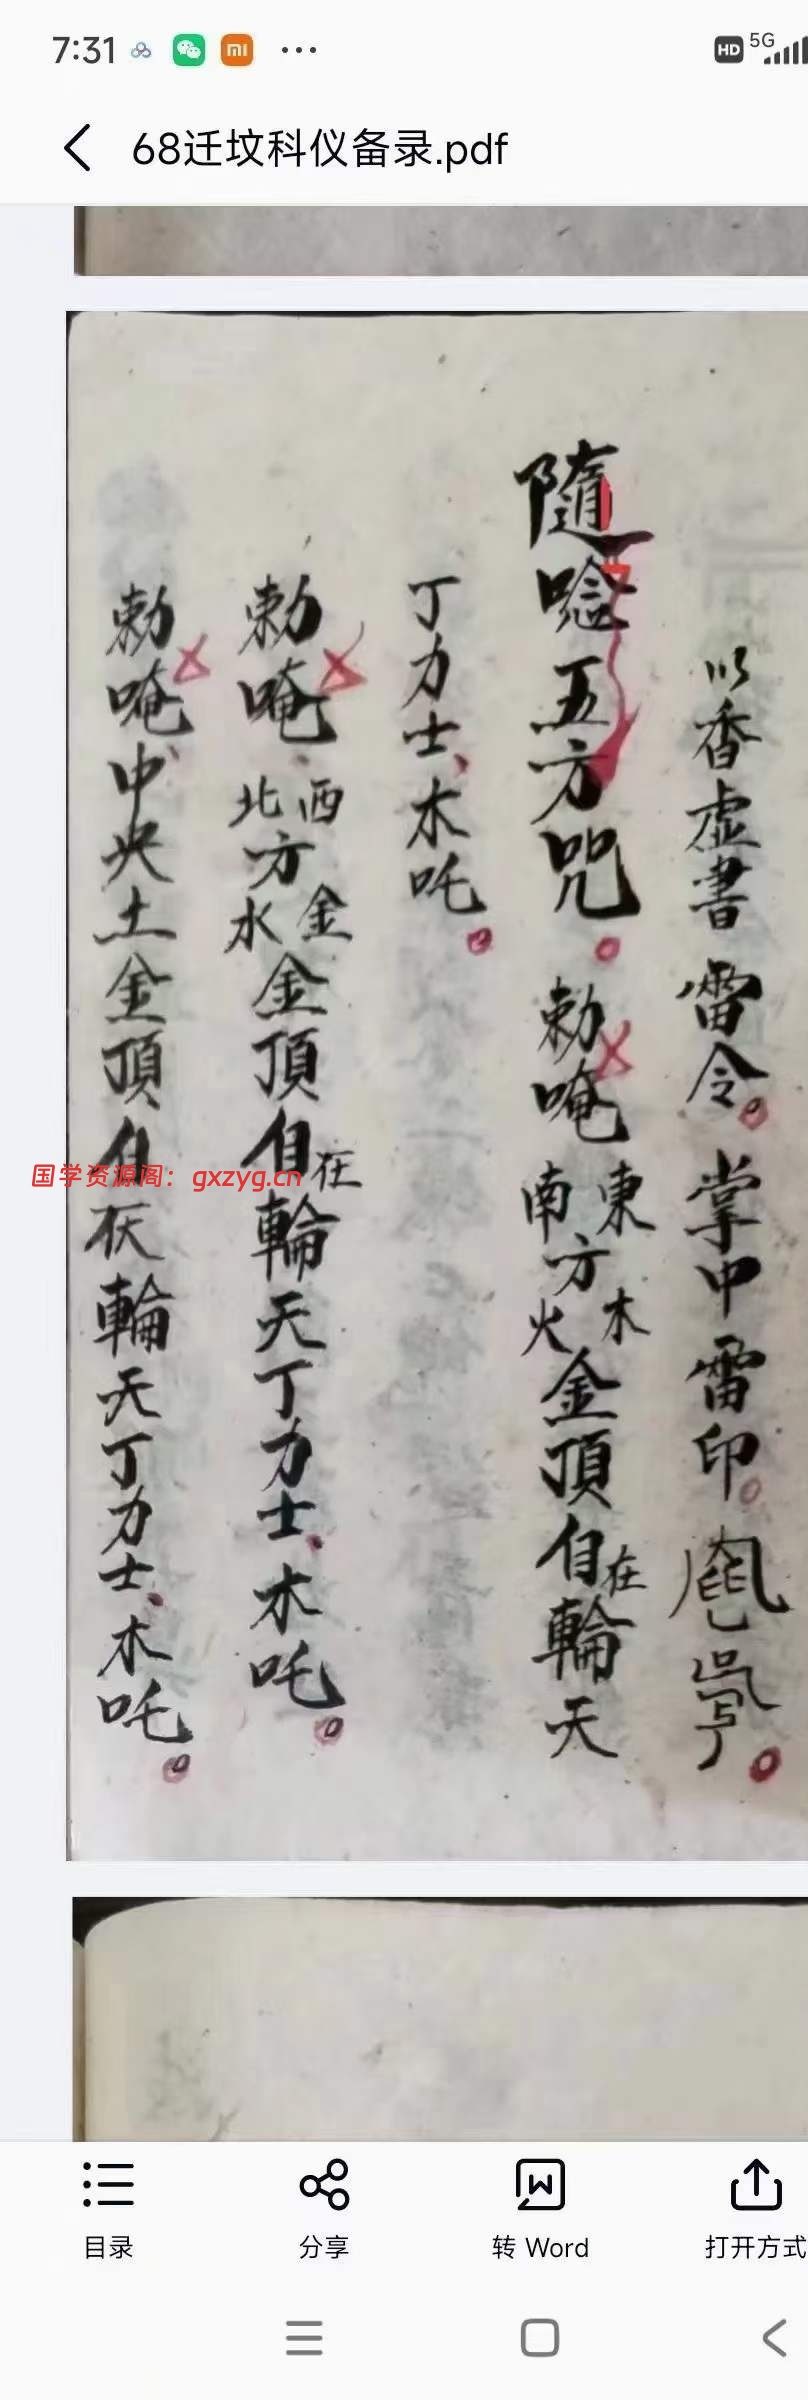 7:31
HD 5G
68迁坟科仪备录.pdf
以香虚書雷令掌中雷印
隨唸五方咒 勅唵 東南方木火金頂自在輪天
丁力士木吒
勅唵西北方金水金頂自在輪天丁力士木吒
勅唵中央土金頂自在輪天丁力士木吒
国学资源阁：gxzyg.cn
目录
分享
转 Word
打开方式